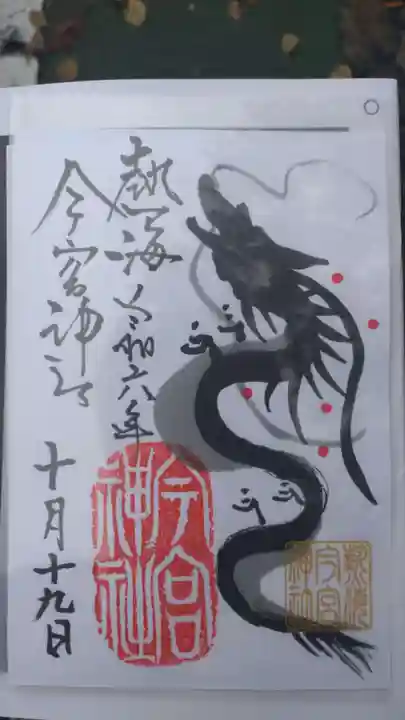 熱海 令和六年
今宮神社
十月十九日
今宮
神社
熱海
今宮
神社